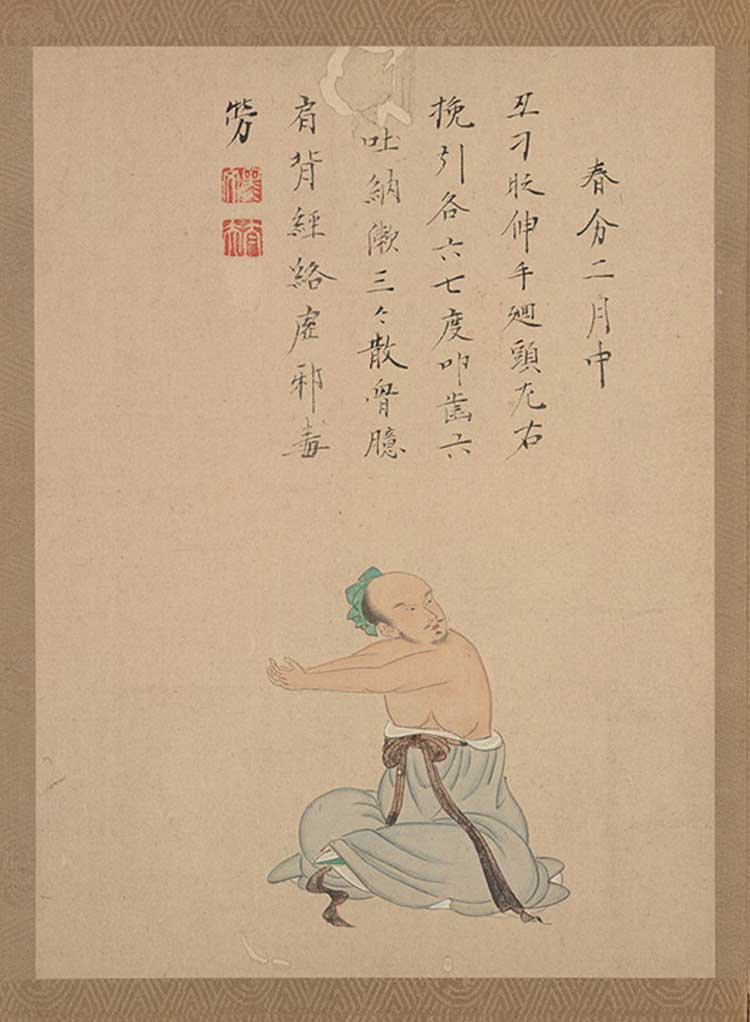 春分二月中
丑刁伸手廻頭左右
挽引各六七度叩齒六
吐納漱三々散胷臆
肩背經絡虛邪毒
勞